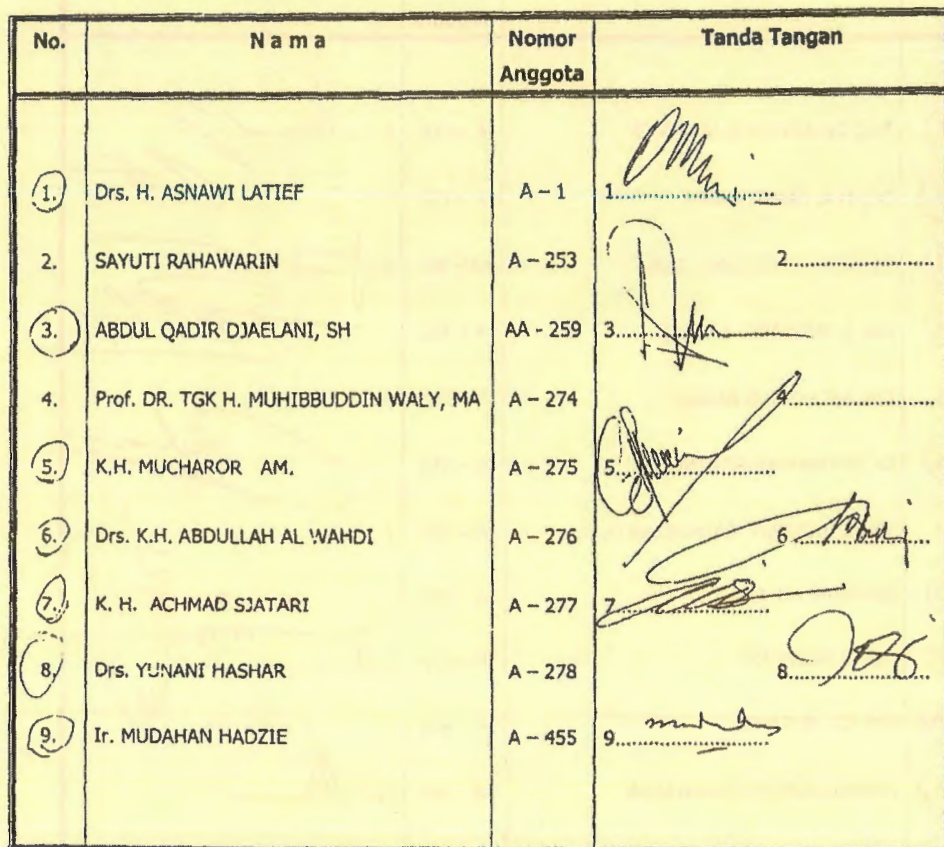 No. N a m a Nomor Anggota Tanda Tangan
1. Drs. H. ASNAWI LATIEF A – 1 1...........................
2. SAYUTI RAHAWARIN A – 253 2.......................
3. ABDUL QADIR DJAELANI, SH AA - 259 3...........................
4. Prof. DR. TGK H. MUHIBBUDDIN WALY, MA A – 274 4.......................
5. K.H. MUCHAROR AM. A – 275 5...........................
6. Drs. K.H. ABDULLAH AL WAHDI A – 276 6.......................
7. K. H. ACHMAD SJATARI A – 277 7...........................
8. Drs. YUNANI HASHAR A – 278 8.......................
9. Ir. MUDAHAN HADZIE A – 455 9...........................